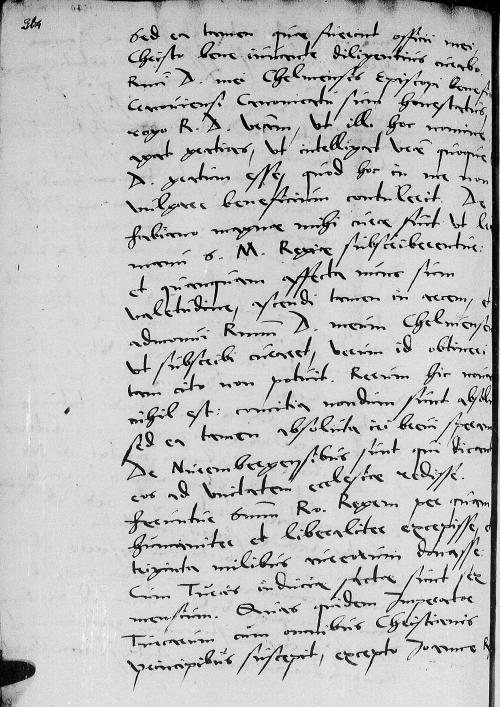 364
Sed ea tamen quae fuerint officii mei,
Christo bene iuvante diligentius curabo.
R.mi D. mei Chelmensis Episcopi benefi
Cracoviensi Canonicatu sum honestatus,
rogo R. D. Vestram, Ut illi hoc nomine
agat gratias, Ut intelligat Vestrae quoque
D. gratum esse, quod hoc in me non
vulgare beneficium contulerit. De
Fabiano magnae mihi curae fuit Ut
manu S. M. Regiae subscriberentur:
et quamquam affecta nunc sum
valetudine, ascendi tamen in arcem, et
admonui R.mum D. meum Chelmensem
Ut subscribi curaret, verum id obtineri
tam cito non potuit. Rerum hic novarum
nihil est: comitia nondum sunt absolu
sed ea tamen absolutum iri brevi speram
De Nurembergensibus sunt qui dicant
eos ad Unitatem ecclesiae rediisse.
Feruntur Sermum Ro. Regem per quam
humaniter et liberaliter excepisse, et
triginta milibus aureorum donasse.
Cum Turcis induciae factae sunt sex
mensium. Quas quidem Imperator
Turcarum cum omnibus Christianis
Principibus suscepit, excepto Joanne R